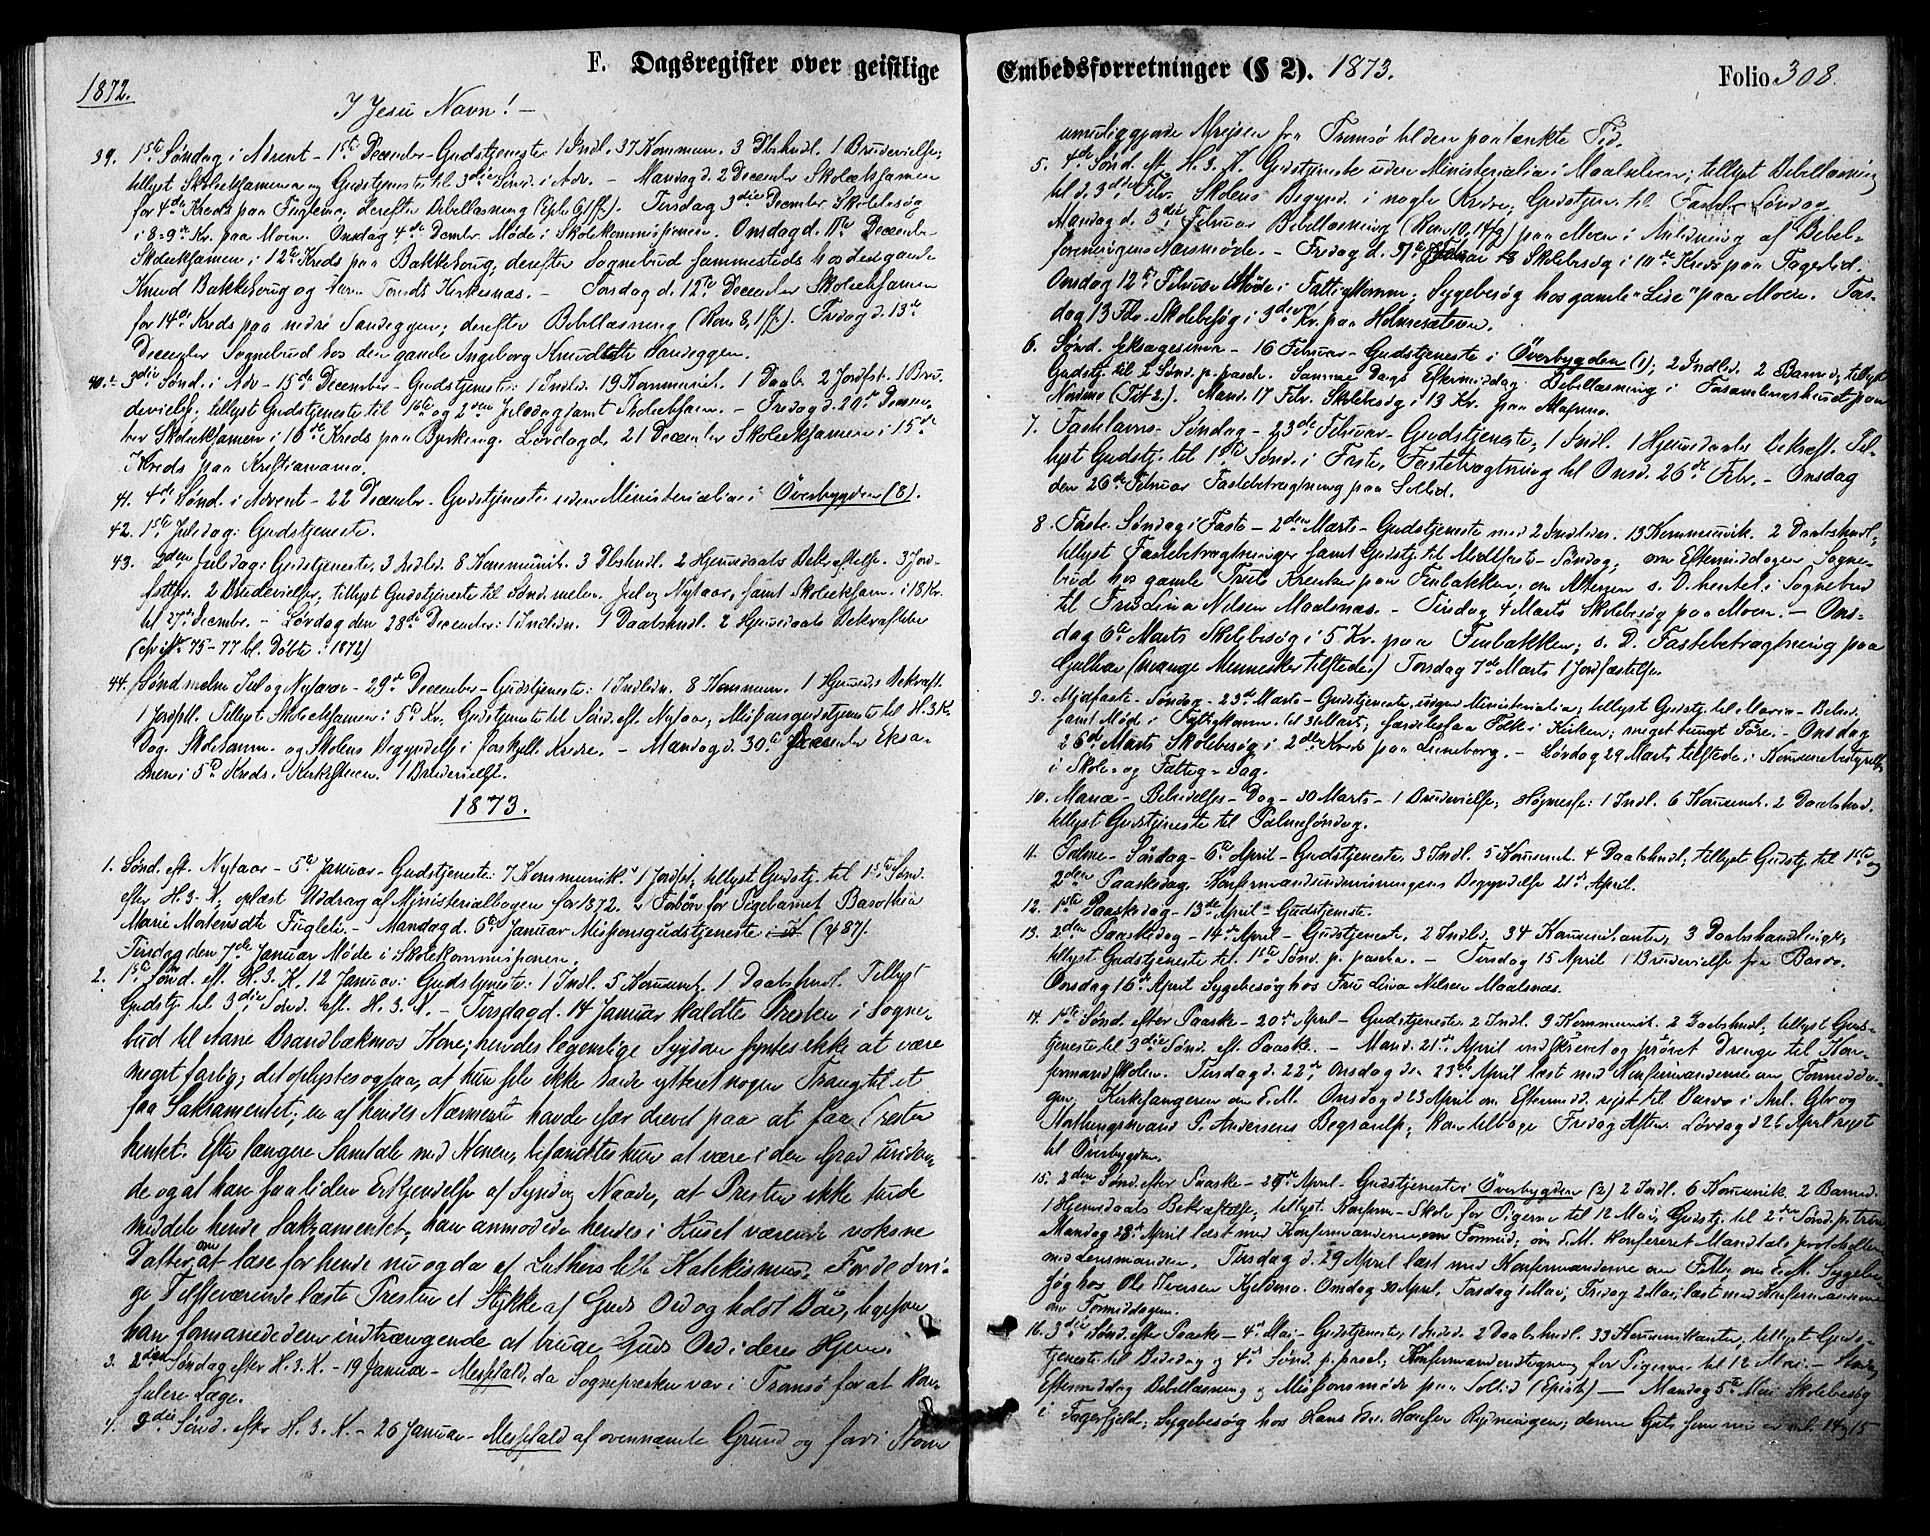 F. Dagsregister over geistlige
1872.
I Jesu Navn! –
39. 1ste Søndag i Advent – 1ste December – Gudstjeneste 1 Indl. 37 Kommun. 3 Dbshndl. 1 Brudevielse;
tillyst Skoleeksamener og Gudstjeneste til 3die Sønd. i Adv. – Mandag d. 2 December Skoleeksamen
for 4de Kreds paa Fuglemo, derefter Bibellæsning. Tirsdag 3die December Skolebesøg
i 8–9de Kr. paa Moen. Onsdag 4de Dcmbr. Møde i Skolekommissionen. Onsdag d. 11te December
Skoleeksamen i 12te Kreds paa Bakkehaug; derefter Sognebud sammesteds hos
Knud Bakkehaug og Kirkesnæs. – Torsdag d. 12te December Skoleeksamen
for 14de Kreds paa nedre Sandeggen; derefter Bibellæsning (Rom 8, 1 ff.). Fredag d. 13de
December Sognebud hos den gamle Ingeborg Knudsdtte Sandeggen.
40. 3die Sønd. i Adv – 15de December – Gudstjeneste: 1 Indled. 19 Kommunik. 1 Daab. 2 Jordfst. 1 Bru-
devielse; tillyst Gudstjeneste til 1ste og 2den Juledag samt Skoleeksamen. – Fredag d. 20de Decem-
ber Skoleeksamen i 16de Kreds paa Byrkeng. Lørdag d. 21 December Skoleeksamen i 15de
Kreds paa Kristianamo.
41. 4de Sønd. i Advent – 22 December. Gudstjeneste uden Ministerialia i Øverbygden (8).
42. 1ste Juledag: Gudstjeneste.
43. 2den Juledag: Gudstjeneste, 3 Indled. 8 Kommunik. 3 Dbshndl. 2 Hjemmedaabs Bekræftelse. 3 Jord-
fæstelser. 2 Brudevielser; tillyst Gudstjeneste til Sønd. mellem Jul og Nytaar, samt Skoleeksam. i 18 Kr.
til 27de December. – Lørdag den 28de December: 1 Indledn. 1 Daabshndl. 2 Hjemmedaabs Bekræftelse
75–77 bl. Døbte 1872)
44. Sønd. mellem Jul og Nytaar – 29de December – Gudstjeneste: 1 Indledn. 8 Kommun. 1 Hjemmeds Bekræft.
1 Jordfst. Tillyst Skoleeksamen i 5te Kr., Gudstjeneste til Sønd. eft. Nytaar; Missionsgudstjeneste til H. 3 K.
Dag. Skolekomm. og Skolens Begyndelse i forskjell. Kredse. – Mandag d. 30te December Eksa-
men i 5te Kreds i Kirkestuen. 1 Brudevielse.
1873.
1. Sønd. eft. Nytaar – 5te Januar – Gudstjeneste: 7 Kommunik. 1 Jordfst., tillyst Gudstj. til 1ste Sønd.
efter H. 3. K; oplæst Uddrag af Ministerialbogen for 1872. Forbøn for Pigebarnet
Marie Mortensdtr Fugleli. – Mandag d. 6te Januar Missionsgudstjeneste (ψ 87).
Tirsdag den 7de Januar Møde i Skolekommissionen.
2. 1ste Sønd. eft. H. 3. K. 12 Januar: Gudstjeneste: 1 Indl. 5 Kommnt. 1 Daabshndl. Tillyst
Gudstj. til 3die Sønd. eft. H. 3. K. – Tirsdag d. 14 Januar kaldtes Presten i Sogne-
bud til Aane Brandbækmos Kone; hendes legemlige Sygdom syntes ikke at være
meget farlig; det oplystes ogsaa, at hun selv ikke havde yttret nogen Trang til at
faa Sakramentet; en af hendes Nærmeste havde især drevet paa at faa Presten
hentet. Efter længere Samtale med Konen, befandtes hun at være i den Grad uviden-
de og at have saa liden Erkjendelse af Synd og Naade, at Presten ikke turde
meddele hende Sakramentet, han anmodede hendes i Huset værende voksne
Datter om at læse for hende nu og da af Luthers lille Katekismus. For de øvri-
ge Tilstedeværende læste Presten et Stykke af Guds Ord og holdt Bøn, ligesom
han formanede dem indtrængende at bruge Guds Ord i deres Hjem.
3. 2den Søndag efter H. 3. K. – 19 Januar – Messfald, da Sognepresten var i Tromsø for at kon-
sulere Læge.
4. 3die Sønd. efter H. 3. K. – 26 Januar – Messfald af ovennævnte Grund og fordi Storm
Embedsforretninger (§ 2). 1873.
Folio 308.
umuliggjorde Afreisen fra Tromsø til den paatænkte Tid.
5. 4de Sønd. eft. H. 3. K. Gudstjeneste uden Ministerialia i Maalselven; tillyst Bibellæsning
til d. 3die Febr. Skolens Begynd. i nogle Kredse, Gudstjen. til Fastel. Søndag.
Mandag d. 3die Februar Bibellæsning (Rom 10, 14 ff) paa Moen i Anledning af Bibel-
foreningens Aarsmøde. – Fredag d. 7de Februar Skolebesøg i 10de Kreds paa Fagerlid.
Onsdag 12te Februar Møde i Fattigkomm; Sygebesøg hos gamle "Lise" paa Moen. Tors-
dag 13 Febr. Skolebesøg i 3die Kr. paa Holmesæteren.
6. Sønd. Seksagesima – 16 Februar – Gudstjeneste i Øverbygden (1); 2 Indled. 2 Barned. tillyst
Gudstj. til 2 Sønd. p. pasch. Samme Dags Eftermiddag Bibellæsning i Forsamlingshuset paa
Nordmo (Tit 2.). Mand. 17 Febr. Skolebesøg i 13 Kr. paa
7. Fastelavns-Søndag – 23de Februar – Gudstjeneste; 1 Indl. 1 Hjemmedaabs Bekræft. Til-
lyst Gudstj. til 1ste Sønd. i Faste, Fastebetragtning til Onsd. 26de Febr. – Onsdag
den 26de Februar Fastebetragtning paa Sollid.
8. 1ste Søndag i Faste – 2den Marts – Gudstjeneste med 2 Indledn. 13 Kommunik. 2 Daabshndl;
tillyst Fastebetragtninger samt Gudstj. til Midfaste-Søndag; om Eftermiddagen Sogne-
bud hos gamle paa Finbakken; om Aftenen s. D. hentet i Sognebud
til Fru Lina Nilsen Maalsnæs. – Tirsdag 4 Marts Skolebesøg paa Moen. – Ons-
dag Marts Skolebesøg i 5 Kr. paa Finbakken; s. D. Fastebetragtning paa
Gulhav (mange Mennesker tilstede.) Torsdag 7de Marts 1 Jordfæstelse.
9. Midfaste-Søndag – 23de Marts – Gudstjeneste, uden Ministerialia; tillyst Gudstj. til Maria-Bebud.
samt Mød. i Fattigkomm. til 31 Marts; særdeles faa Folk i Kirken; meget tungt Føre. – Onsdag
26de Marts Skolebesøg i 2den Kreds paa Luneborg. – Lørdag 29 Marts tilstede i Kommunebestyrelse
i Skole- og Fattig-Sag.
10. Mariæ-Bebudelses-Dag – 30 Marts – 1 Brudevielse; Høimesse: 1 Indl. 6 Kommnt. 2 Daabshnd.
tillyst Gudstjeneste til Palmesøndag.
11. Palme-Søndag – 6te April – Gudstjeneste, 3 Indl. 5 Kommnt. 4 Daabshndl; tillyst Gudstj. til 1ste og
2den Paaskedag. Konfirmandundervisningens Begyndelse 21de April.
12. 1ste Paaskedag – 13de April – Gudstjeneste.
13. 2den Paaskedag – 14de April – Gudstjeneste, 2 Indled. 34 Kommunikanter, 3 Daabshandlinger,
tillyst Gudstjeneste til 1ste Sønd. p. pascha. – Tirsdag 15 April 1 Brudevielse fra Bardo.
Onsdag 16de April Sygebesøg hos Fru Lina Nilsen Maalsnæs.
14. 1ste Sønd. efter Paaske – 20de April – Gudstjeneste, 2 Indl. 9 Kommunik. 2 Daabshndl; tillyst Guds-
tjeneste til 3die Sønd. eft. Paaske. – Mand. 21de April indskrevet og prøvet Drenge til Kon-
firmandskolen. Tirsdag d. 22de, Onsdag den 23de April læst med Konfirmanderne om Formidda-
gen, Kirkesangeren om E.M. Onsdag d. 23 April om Eftermidd. reist til Bardo i Anl. Gbr og
Storthingsmand P. Andersens Begravelse; kom tilbage Fredag Aften. Lørdag d. 26 April reist
til Øverbygden.
15. 2den Sønd. efter Paaske – 27de April – Gudstjeneste i Øverbygden (2) 2 Indl. 6 Kommunik. 2 Barned.
1 Hjemmedaabs Bekræftelse; tillyst Konfirm-Skole for Pigerne til 12 Mai, Gudstj. til 2den Sønd. p. trin.
Mandag 28de April læst med Konfirmanderne om Formid; om E.M. konfereret Mandtalsprotokollen
med Lensmanden. Tirsdag d. 29 April læst med Konfirmanderne om Form., om E.M. Sygebe-
søg hos Ole Iversen Kjeldmo. Onsdag 30 April, Torsdag 1 Mai, Fredag 2 Mai læst med Konfirmanderne
om Formiddagen.
16. 3die Sønd. efter Paaske – 4de Mai – Gudstjeneste, 1 Indled. 2 Daabshndl. 33 Kommunikanter, tillyst Guds-
tjeneste til Bededag og 4de Sønd. p. pasch; Konfirmandmodtagning for Pigerne til 12 Mai. – Søndag
Eftermiddag Bibellæsning og Missionsmøde paa Sollid – Mandag 5te Mai Skolebesøg
i Fagerfjeld; Sygebesøg hos Hans Rydningen;